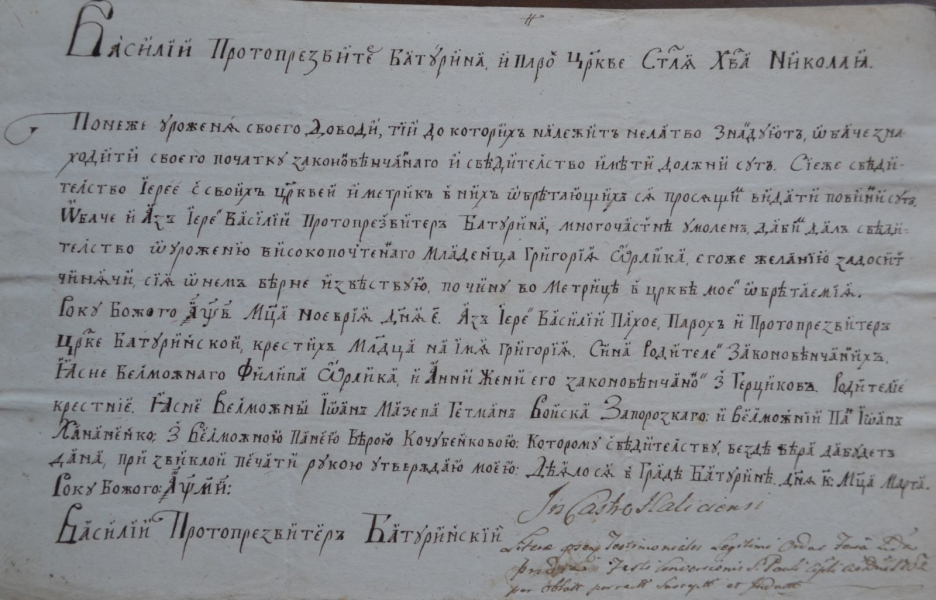 Василій Протопрезвите҆ Батурина, и Паро҆ Цр҃кве Ст҃ля Хв҃а Николаия.
Понеже уроженя своего Доводи, тїи до которихъ належитъ шлятво знайдуютъ, ѡбаче зна
ходити своего початку законовѣнчаннаго и свѣдителство имѣти должни сутъ. Сїеже свѣди-
телство Їерее с своихъ црквей и метрик в нихъ ѡбрѣтающихъ ся просящи҆ видати повинни сутъ.
Ѿбаче и Азъ Їере҆ Василій Протопрезвитеръ Батурина, многочастнѣ умоленъ, дави҆ далъ свѣди-
телство ѡ уроженїю високопочтеннаго Младенца Григорїя Ѡрлика, егоже желанїю задосит
чинячи, сїя ѡ немъ вѣрне извѣствую, по чину во Метрицѣ в црквѣ мое҆ ѡбрѣтаемїя.
Року Божого ҂АѰВ Мц҃а Ноеврїя дня Е҃. Азъ Їере҆ Василій Парох и Протопрезвитеръ
Цр҃кве Батуринской, крестихъ Млад҃ца на Їмя Григорїя. Сина Родителе҆ Законовѣнчаннихъ,
Ясне Велможнаго Филипа Ѡрлика, и Анни Жени его законовѣнчано҆ З Герциковъ. Родителїе
крестнїе. Ясне Велможны Їѡан Мазепа Гетман Войска Запорозкаго: и Велможній Па҆ Їѡанъ
Ханаенко: З Велможною Панею Вѣрою Кочубейковою: Которому свѣдителству, вездѣ вѣра дабудетъ
дана, при звиклой печати рукою утверждаю моею: Дѣялося в Градѣ Батуринѣ. дня К: Мц҃а Марта.
Року Божого: ҂АѰИИ:
Василій Протопрезвитеръ Батуринскій
In Castro Haliciensi
Literæ Testimoniales Legitimi
Festi Conversionis S. Pauli
per oblatam suscept et